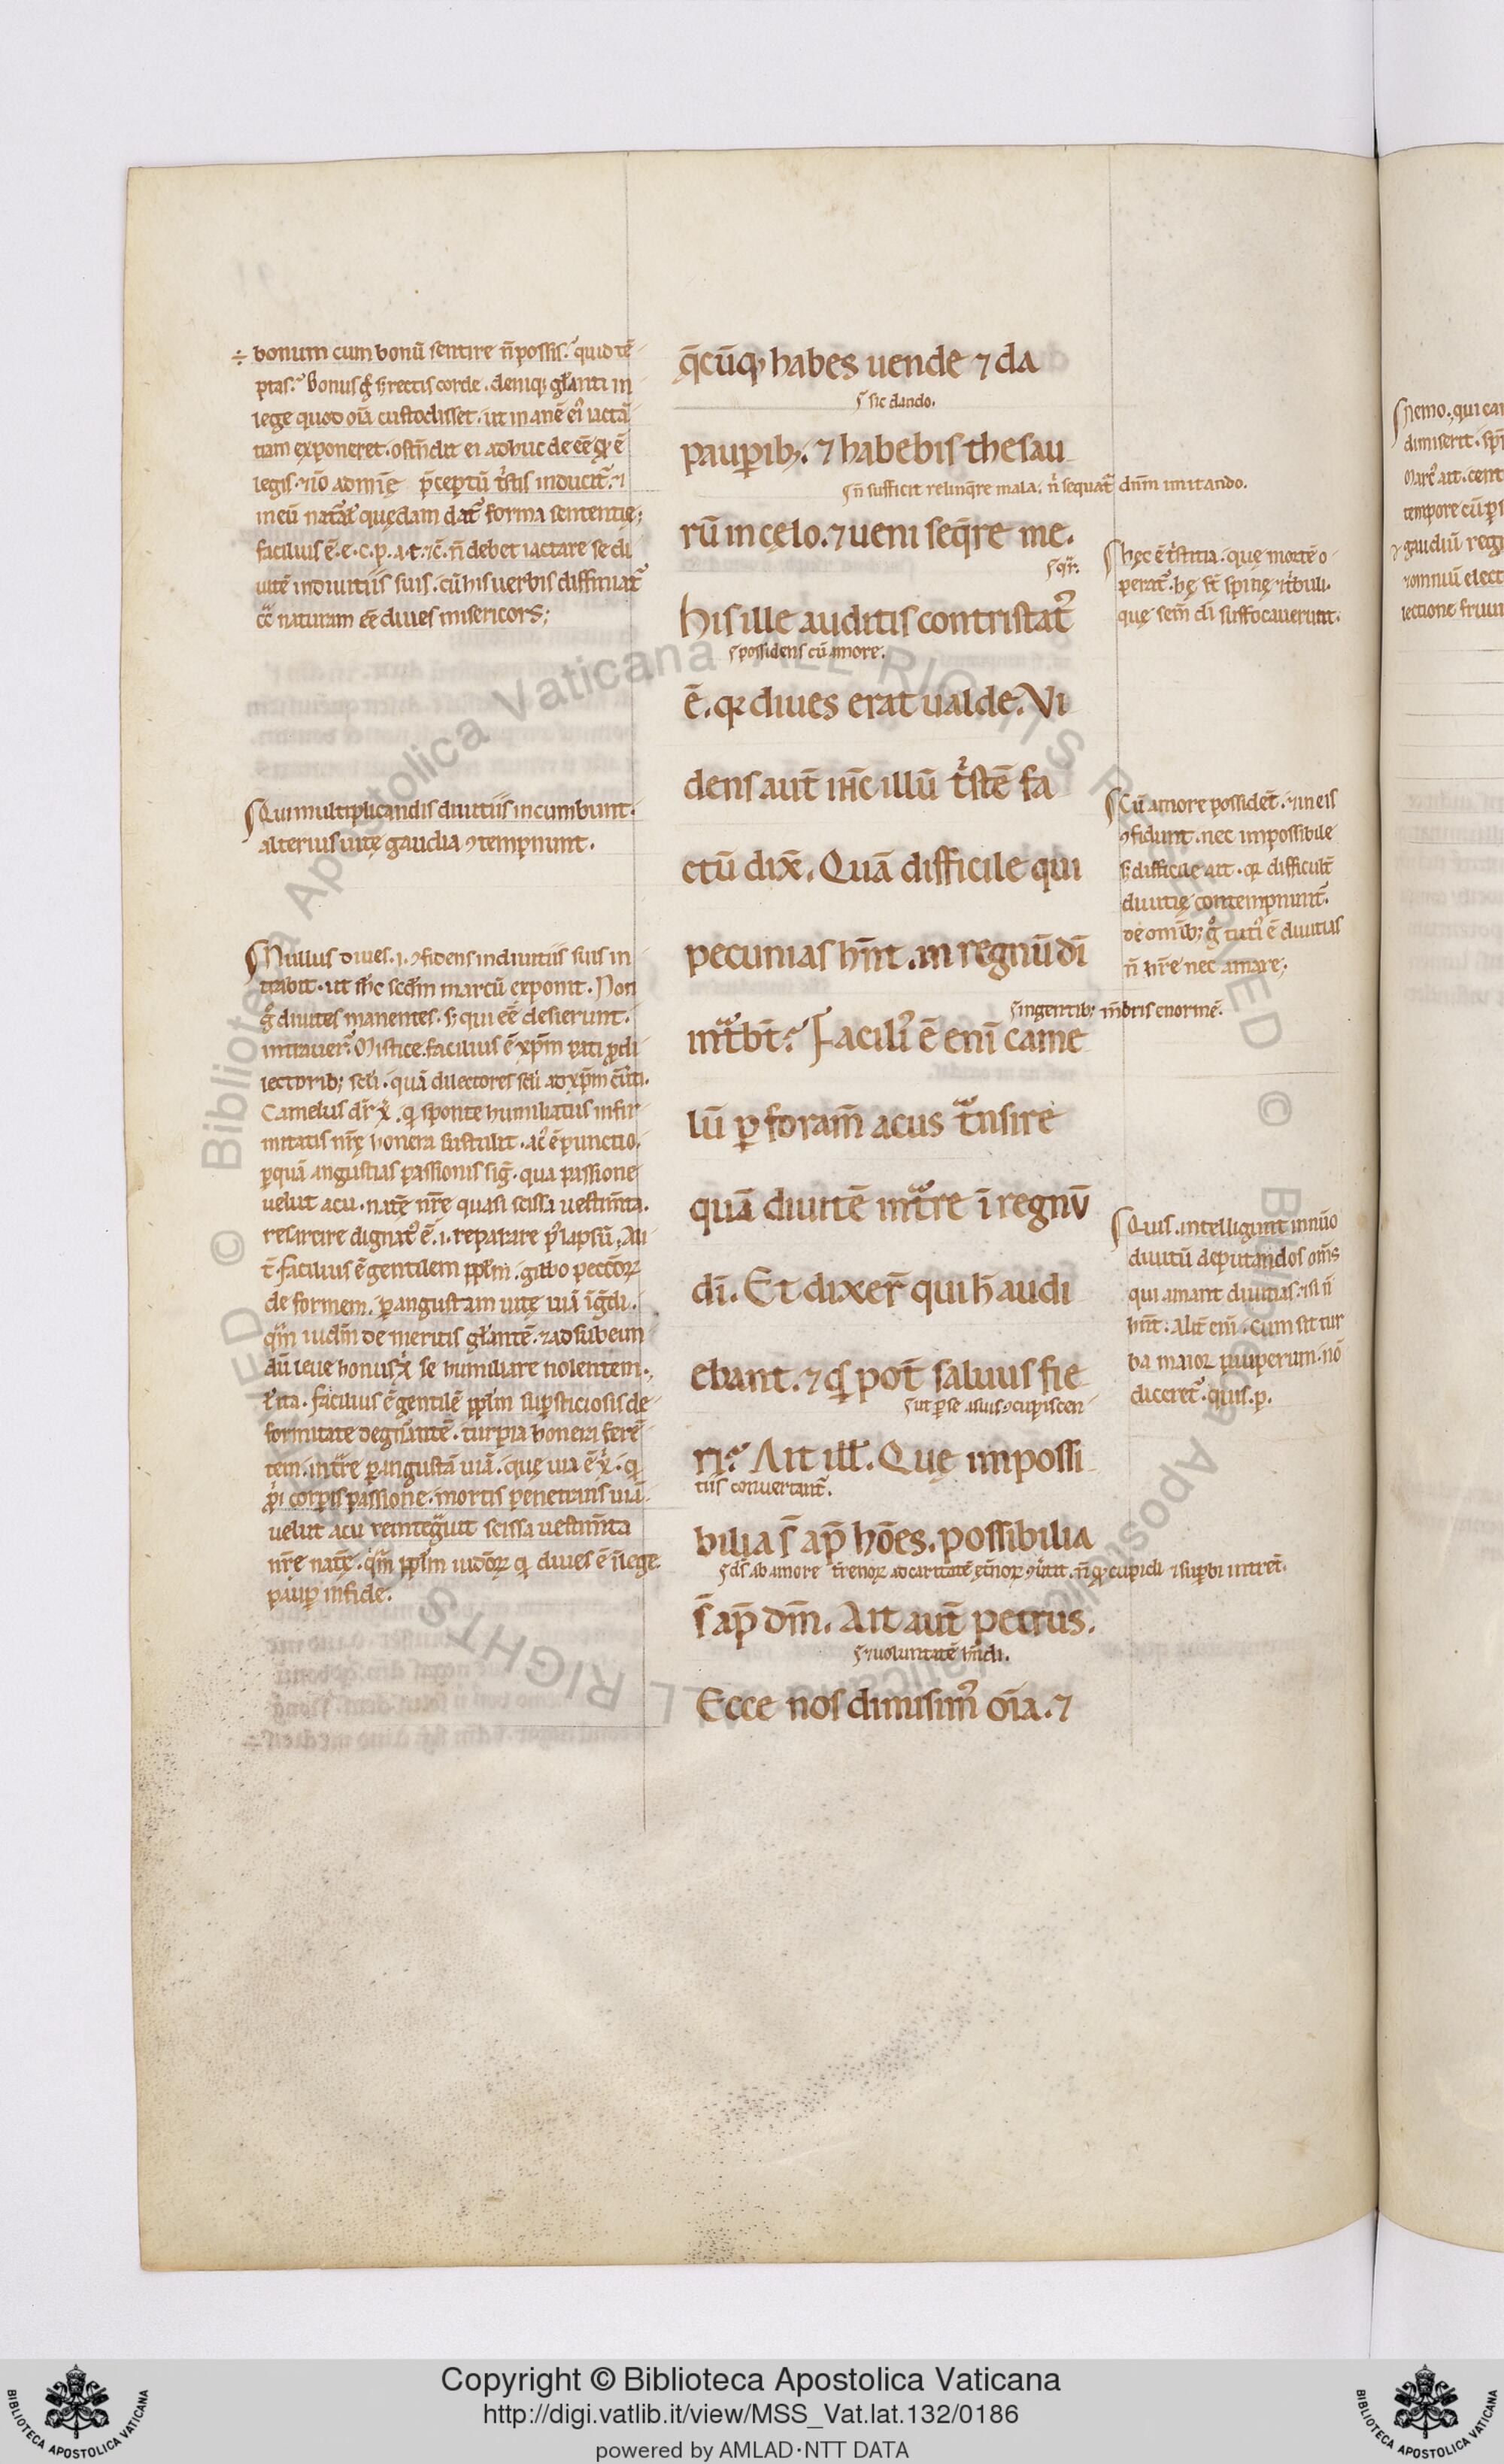 ÷ bonum cum bonū sentire n̄ possis. quid tē
ptas. Bonus ḡ ł rectis corde. deniq; gl̄anti in
lege quod oīa custodisset. ut inanē eī iactā
tiam exponeret. ostn̄dit ei adhuc deeē qd̄ ē
legis.
ineū quędam dat̄ forma sententię;
facilius ē. e. c. p. a. t. n̄ debet iactare se di
uitē in diuitiis suis. cū his uerbis diffiniat̄
naturam diues misericors;
Qui multiplicandis diuitiis incumbunt.
alterius uitę gaudia ꝯtempnunt.
Nullus diues. i. ꝯfidens in diuitiis suis in
trabit. ut hic scd̄m marcū exponit. Non
ḡ diuites manentes. s; qui eē desierunt.
intrauer̄. Mistice. facilius ē xp̄m pati ꝓ di
lectorib; scl̄i. quā dilectores scl̄i ad xp̄m
Camelus dr̄ xp̄. qi sponte humiliatus infir
mitatis nr̄ę honera sustulit. acꝰ ē punctio.
ꝑ quā angustias passionis siḡ. qua passione
uelut acu. natę nr̄e quasi scissa uestim̄ta.
resarcire dignatꝰ ē. i. reparare p̄ lapsū. Ali
t̄. facilius ē gentilem ppl̄m. gibbo pecc̄oꝝ
deformem. ꝑ angustam uitę uiā
qm̄ iudm̄ de meritis gl̄antē. ⁊ ad subeun
dū leue honus xp̄i se humiliare nolentem.
facilius ē gentilē ppl̄m suꝑsticiosis de
formitate degrauatē. turpia honera feren
tem. intr̄re ꝑ angustā uiā. que uia ē xp̄. qi
ꝓpi corporis passione. mortis penetrans uiā.
uelut acu reintegrauit scissa uestim̄ta
nr̄e natę. qm̄ ppl̄m iudeoꝝ qi diues ē ī lege.
paup̄ in fide.
q̄cūq; habes uende ⁊ da
sic dando.
pauꝑib;. ⁊ habebis thesau
n̄ sufficit relinq̄re mala. nͥ sequat̄ dn̄m imitando.
rū in cęlo. ⁊ ueni seq̄re me.
His ille auditis contristatꝰ
possidens cū amore.
ē. qꝛ diues erat ualde. Vi
dens aut̄ ih̄c illū tͥstē fa
ctū dix̄. Quā difficile qui
pecunias hn̄t. in regnū dī
ingentib; mēbris enormē.
intͣbt̄. Faciliꝰ ē enī came
lū ꝑ foram̄ acus tͣnsire
quā diuitē intͣre ī regnū
dī. Et dixer̄ qui h̄ audi
ebant. ⁊ qͥs pot̄ saluus fie
ut ꝑ se a suis ꝯcupiscen
ri. Ait ill̄. Quę impossi
tiis conuertant̄.
bilia s̄ ap̄ hōes. possibilia
ds̄ ab amore terrenoꝝ ad caritatē ęt̄noꝝ n̄ qd̄ cupidi ⁊ suꝑbi intrēt.
s̄ ap̄ dm̄. Ait aut̄ petrus.
⁊ uoluntatē hn̄di.
Ecce nos dimisimꝰ oīa. ⁊
hęc ē tͥstitia. que mortē o
perat̄. hę st̄ spinę ⁊ tͥbuli.
quę sem̄ dī suffocauerunt.
Cū amore possidet. ⁊ in eis
ꝯfidunt. nec impossibile
s; difficile ait. qꝛ difficult̄
diuitię contempnunt̄.
de omīb; ḡ tutiꝰ ē diuitias
n̄ hr̄e nec amare;
Quis. intelligunt in nūo
diuitū deputandos om̄s
qui amant diuitias. ⁊ si n̄
hn̄t. alit̄ em̄. cum sit tur
ba maior pauperum. nō
diceret̄. quis. p.
Nemo. qui
dimiserit.
Marcꝰ ait. cent
tempore cū
⁊ gaudiū reg
⁊ omniū elect
lectione
Copyright © Biblioteca Apostolica Vaticana
http://digi.vatlib.it/view/MSS_Vat.lat.132/0186
powered by AMLAD·NTT DATA
BIBLIOTECA APOSTOLICA VATICANA
BIBLIOTECA APOSTOLICA VATICANA